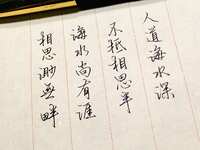 人道海水深
不抵相思半
海水尚有涯
相思渺無畔